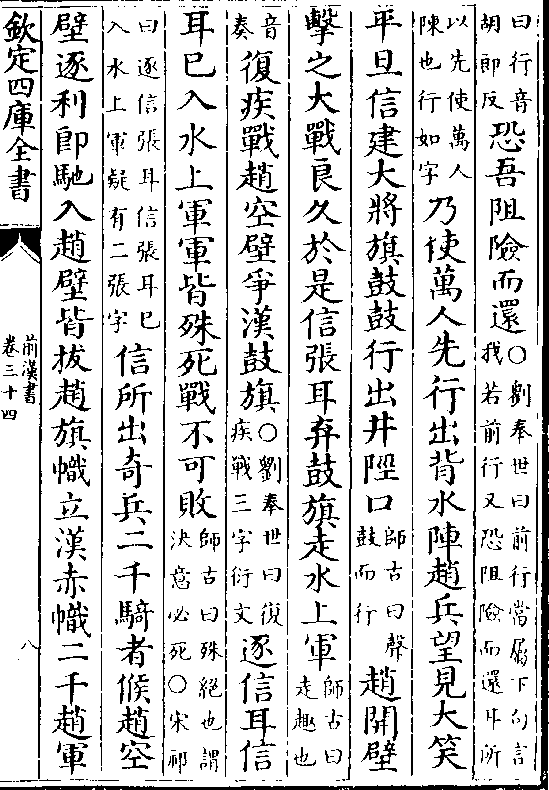 曰行音胡郎反恐吾阻險而還○劉奉世曰前行當屬下句言我若前行又恐阻險而還耳所
以先使萬人陳也行如字乃使萬人先行出背水陣趙兵望見大笑
平旦信建大將旗鼓鼓行出井陘口師古曰聲鼓而行趙開壁
擊之大戰良久於是信張耳弃鼓旗走水上軍師古曰走趣也
音奏復疾戰趙空壁爭漢鼓旗○劉奉世曰復疾戰三字衍文逐信耳信
耳已入水上軍軍皆殊死戰不可敗師古曰殊絕也謂決意必死○宋祁
曰逐信張耳信張耳已入水上軍疑有二張字信所出奇兵二千騎者候趙空
壁逐利即馳入趙壁皆拔趙旗幟立漢赤幟二千趙軍
欽定四庫全書
前漢書
卷三十四
八